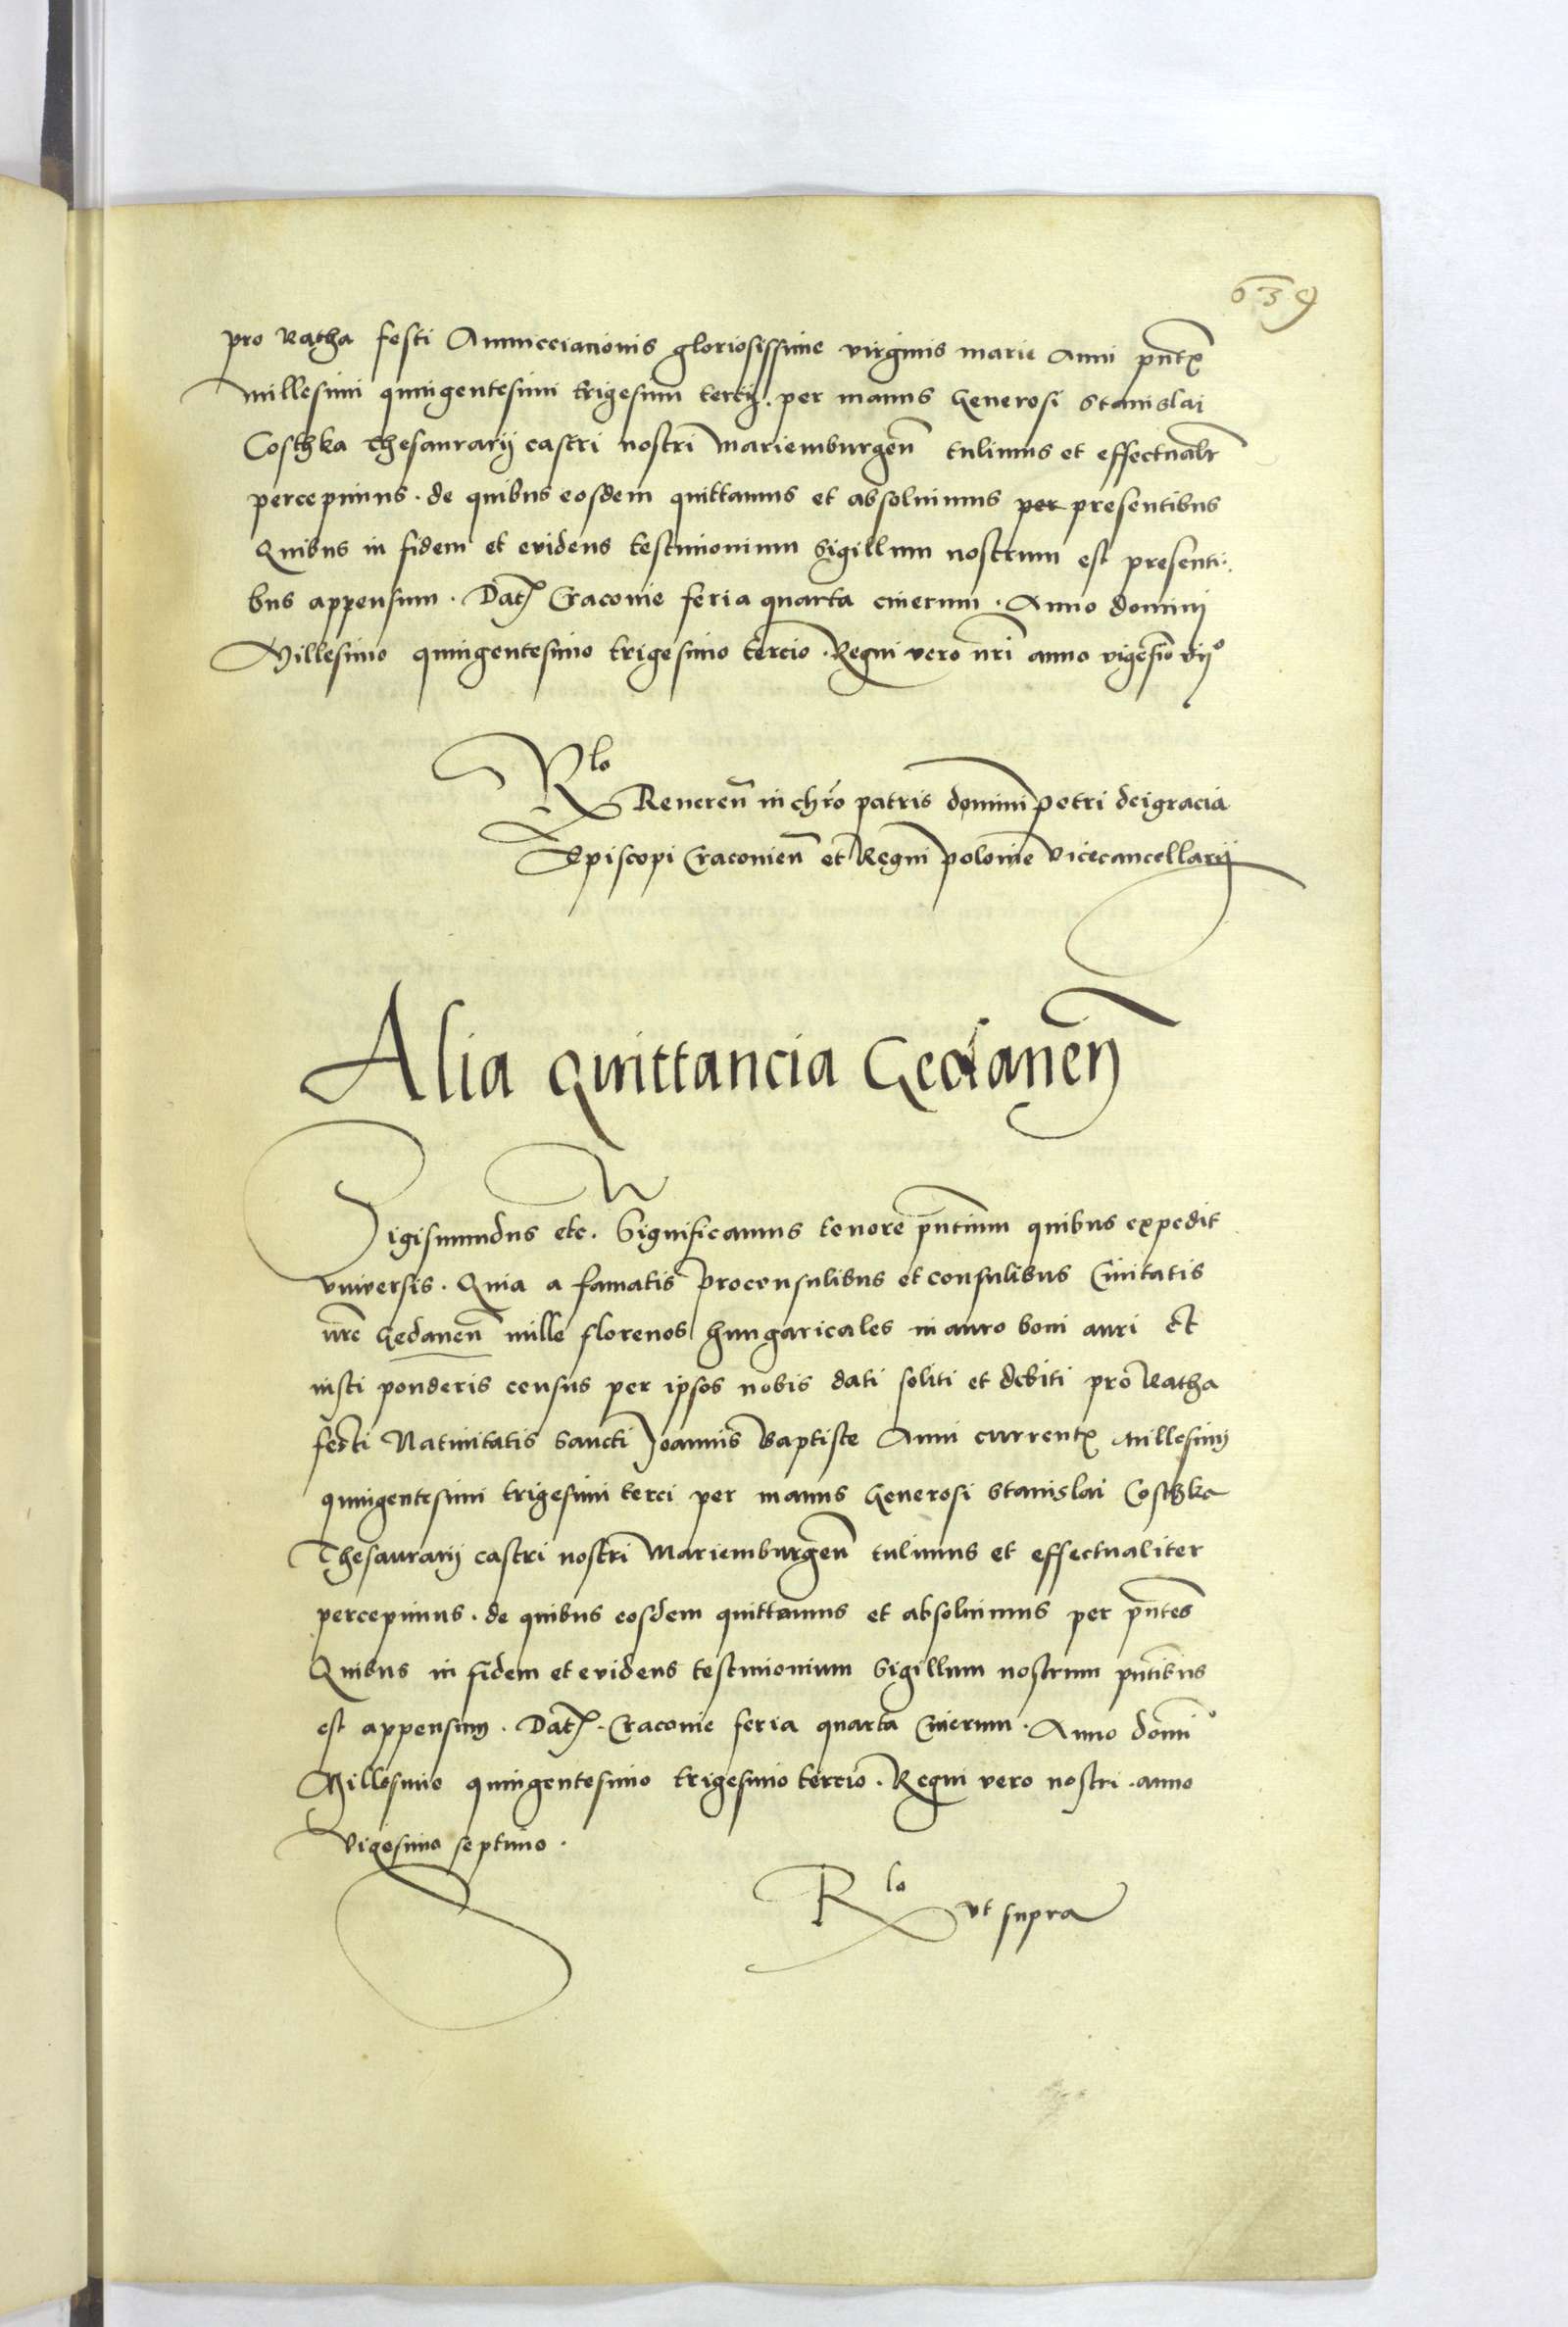 639
pro Ratha festi Annuncciacionis gloriosissime virginis marie Anni pñtꝭ
millesimi quingentesimi trigesimi tercij. per manus Generosi Stanislai
Costhka Thesaurarij castri nostri Mariemburgeñ tulimus et effectualr̃
percepimus. de quibus eosdem quittamus et absoluimus per presentibus
Quibus in fidem et euidens testimonium Sigillum nostrum est presenti:
bus appensum. Datꝭ Cracouie feria quarta cinerum. Anno dominj
Millesimo quingentesimo trigesimo tercio. Regni vero nr̃i anno vigesĩo vijº
Rlo
Reuereñ in chr̃o patris domini Petri dei gracia
Episcopi Cracouieñ et Regni Polonie Vicecancellarij
Alia Quittancia Gedaneñ
Sigismundus etc. Significamus tenore pñtium quibus expedit
vniuersis. Quia a famatis Proconsulibus et Consulibus Ciuitatis
nr̃e Gedaneñ mille florenos hungaricales in auro boni auri Et
iusti ponderis census per ipsos nobis dati soliti et debiti pro Ratha
festi Natiuitatis Sancti Joannis Baptiste Anni currentꝭ Millesimj
quingentesimi trigesimi terci per manus Generosi Stanislai Costhka
Thesaurarij castri nostri Mariemburgeñ tulimus et effectualiter
percepimus. de quibus eosdem quittamus et absoluimus per pñtes
Quibus in fidem et euidens testimonium Sigillum nostrum pñtibus
est appensum. Datꝭ. Cracouie feria quarta Cinerum. Anno domĩ
Millesimo quingentesimo trigesimo tercio. Regni vero nostri. anno
Vigesimo septimo.
Rlo vt supra